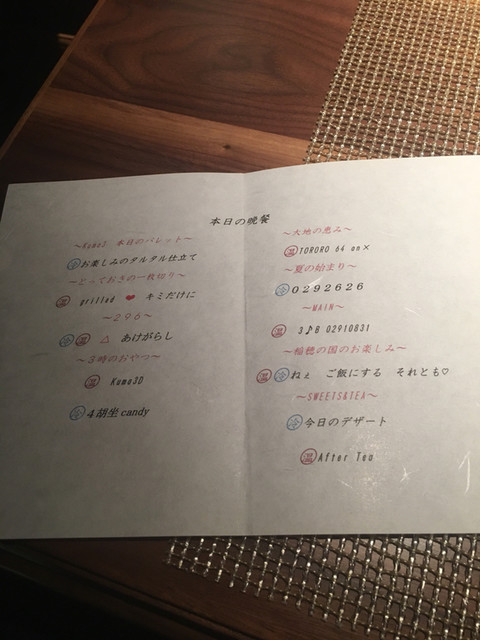 本日の晩餐
～Kumo3 本日のパレット～
冷 お楽しみのタルタル仕立て
～とっておきの一枚切り～
温 grilled ❤ キミだけに
～２９６～
冷 温 △ あけがらし
～３時のおやつ～
温 Kumo3D
冷 ４胡坐candy
～大地の恵み～
温 TORORO 64 on×
～夏の始まり～
冷 ０２９２６２６
～MAIN～
温 3♪B 02910831
～稲穂の国のお楽しみ～
温 冷 ねぇ ご飯にする それとも♡
～SWEETS&TEA～
冷 今日のデザート
温 After Tea